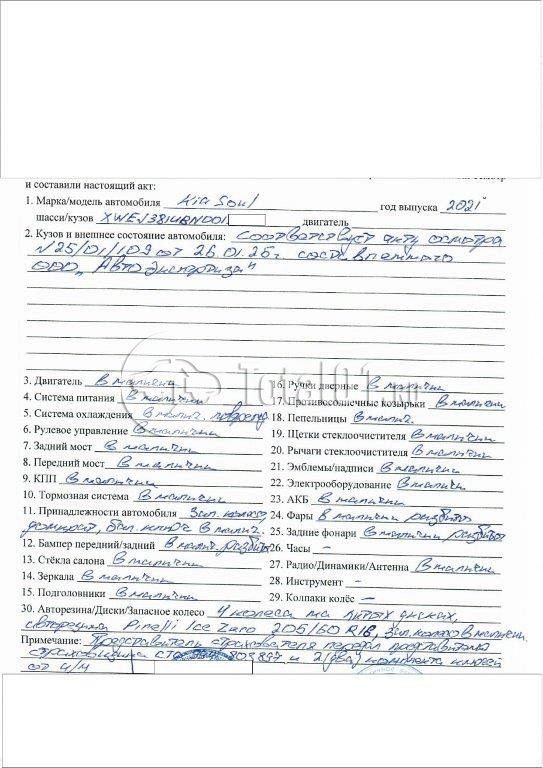 и составили настоящий акт:
1. Марка/модель автомобиля Kia Soul год выпуска 2021
шасси/кузов XWEJ3814BN001 двигатель
2. Кузов и внешнее состояние автомобиля: соответствует акту осмотра
№25/01/109 от 26.01.25г. составленного
ООО "АвтоЭкспертиза"
3. Двигатель в наличии
4. Система питания в наличии
5. Система охлаждения в налич. поврежд
6. Рулевое управление в наличии
7. Задний мост в наличии
8. Передний мост в наличии
9. КПП в наличии
10. Тормозная система в наличии
11. Принадлежности автомобиля Зап. колесо
домкрат, бал. ключ в налич.
12. Бампер передний/задний в налич. разбиты
13. Стёкла салона в наличии
14. Зеркала в наличии
15. Подголовники в наличии
16. Ручки дверные в наличии
17. Противосолнечные козырьки в наличии
18. Пепельницы в налич.
19. Щетки стеклоочистителя в наличии
20. Рычаги стеклоочистителя в наличии
21. Эмблемы/надписи в наличии
22. Электрооборудование в наличии
23. АКБ в наличии
24. Фары в наличии разбиты
25. Задние фонари в наличии, разбиты
26. Часы –
27. Радио/Динамики/Антенна в наличии
28. Инструмент –
29. Колпаки колёс –
30. Авторезина/Диски/Запасное колесо 4 колеса на литых дисках,
авторезина Pirelli Ice Zero 205/60 R16, Зап. колесо в наличии
Примечание: Представитель страхователя передал представителю
страховщика СТС 203897 и 2(два) комплекта ключей
от а/м
Total01.ru